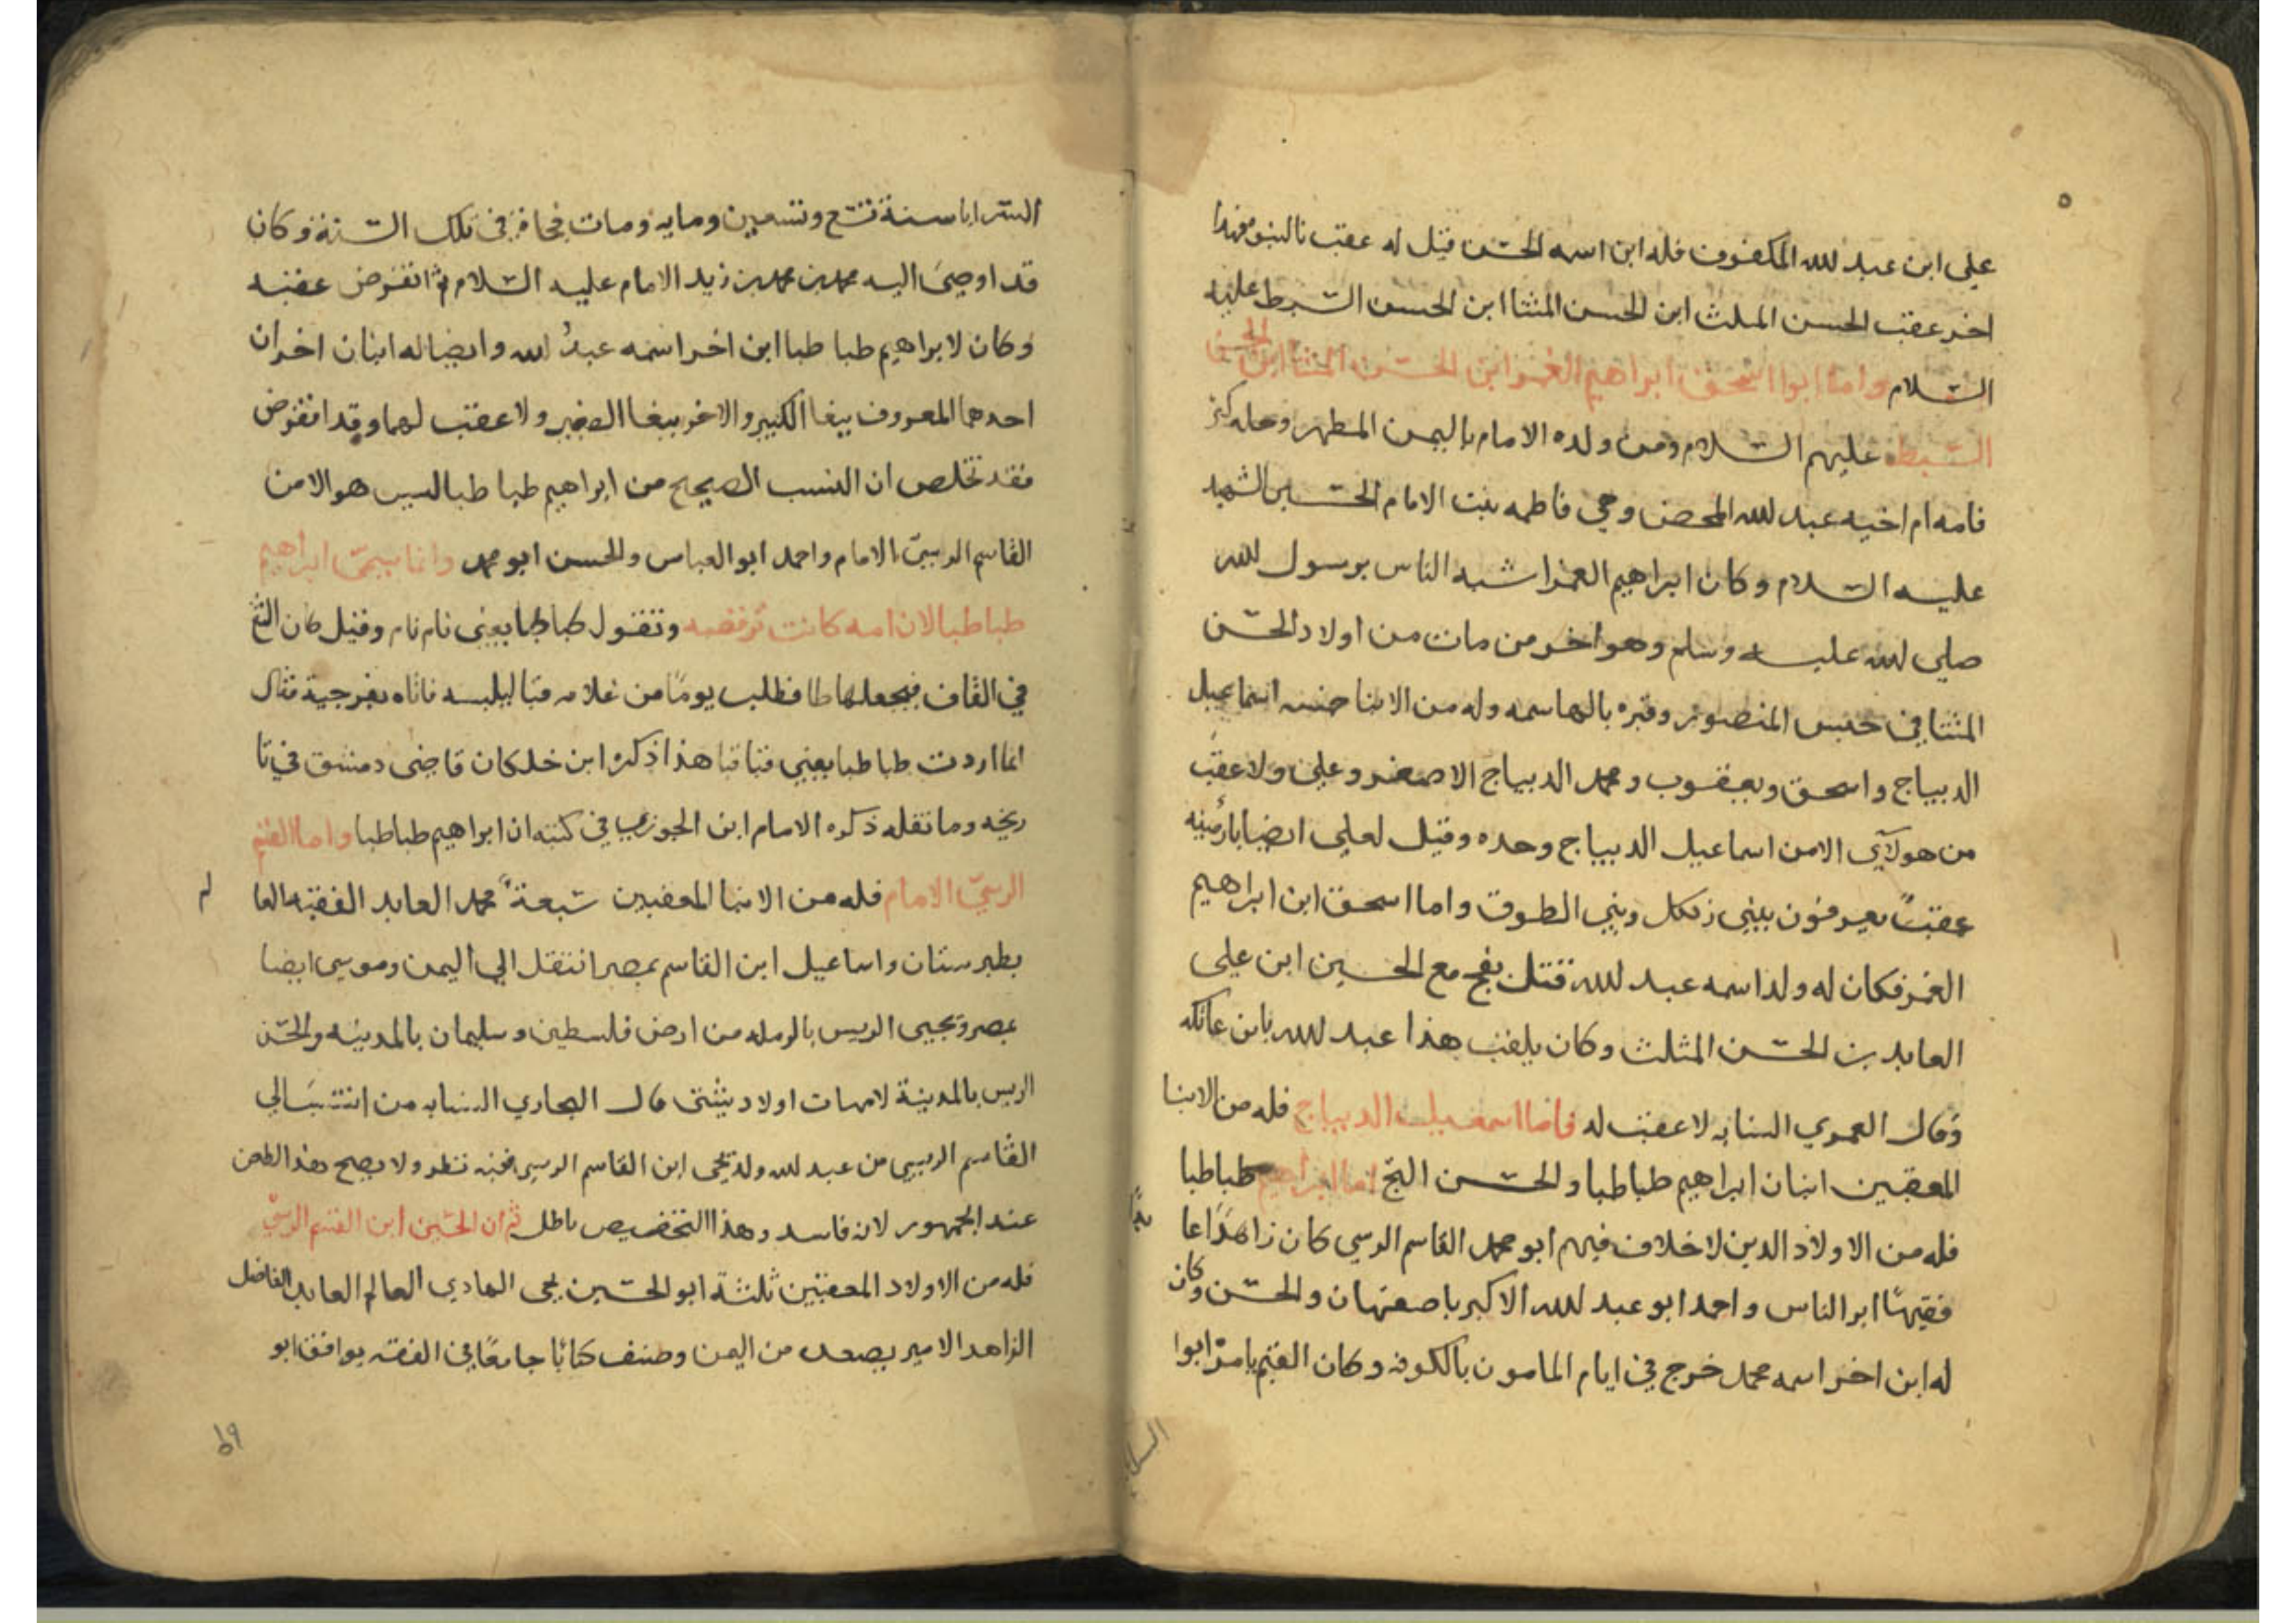 ٥
علي ابن عبد الله المكفوف فله ابن اسمه الحسن قيل له عقب بالينبع فهذا
اخر عقب الحسن المثلث ابن الحسن المثنا ابن الحسن السبط عليه
السلام واما ابوا اسحق ابراهيم الغمر ابن الحسن المثنا ابن الحسن
السبط عليهم السلام ومن ولده الامام باليمن المطهر وحله كثر
فامه ام اخيه عبد الله المحض وهي فاطمه بنت الامام الحسين الشهيد
عليه السلام وكان ابراهيم الغمر اشبه الناس برسول الله
صلى الله عليه وسلم وهو اخر من مات من اولاد الحسن
المثنا في حبس المنصور وقبره بالهاسمه وله من الابنا خمسه اسماعيل
الديباج واسحق ويعقوب ومحمد الديباج الاصغر وعلي ولا عقب
من هولآي الا من اسماعيل الديباج وحده وقيل لعلي ايضا
عقبً يعرفون ببني زنكل وبني الطوق واما اسحق ابن ابراهيم
الغمر فكان له ولد اسمه عبد الله قتل بفخ مع الحسين ابن علي
العابد بن الحسن المثلث وكان يلقب هذا عبد الله بابن عاتكه
وقال العمري النسابه لا عقب له فاما اسمعيل الديباج فله من الابنا
المعقبين ابنان ابراهيم طباطبا والحسن التج اما ابراهيم طباطبا
فله من الاولاد الدين لا خلاف فيهم ابو محمد القاسم الرسي كان زاهدًا عا بدًا
فقيهًا ابر الناس واحمد ابو عبد الله الاكبر باصفهان والحسن وكان
له ابن اخر اسمه محمد خرج في ايام المامون بالكوفه وكان القيم بامره ابوا
السرايا
السرايا سنة تسع وتسعين ومايه ومات فجاة في تلك السنة وكان
قد اوصى اليه محمد بن محمد بن زيد الامام عليه السلام ثم انقرض عقبه
وكان لابراهيم طباطبا ابن اخر اسمه عبدُ الله وايضا له ابنان اخران
احدهما المعروف ببغا الكبير والاخر ببغا الصغير ولا عقب لهما وقد انقرض
فقد تخلص ان النسب الصحيح من ابراهيم طباطبا ليس هو الا من
القاسم الرسيّ الامام واحمد ابو العباس والحسن ابو محمد وانما سمىّ ابراهيم
طباطبا لان امه كانت ترقصه وتقول طباطبا يعني نام نام وقيل كان التغ
في القاف فيجعلها طا فطلب يومًا من غلامه قبا ليلبسه فاتاه بفرجية فقال
انما اردت طباطبا يعني قبا قبا هذا ذكره ابن خلكان قاضي دمشق في تا
ريخه وما نقله ذكره الامام ابن الجوزي في كتبه ان ابراهيم طباطبا واما القسم
الرسيّ الامام فله من الابنا المعقبين سبعة محمد العابد الفقيه العا لم
بطبرستان واسماعيل ابن القاسم بمصر انتقل الي اليمن وموسى ايضا
بمصر ويحيى الريس بالرمله من ارض فلسطين وسليمان بالمدينه والحسن
الريس بالمدينة لامهات اولاد شتى قال البخاري النسابه من انتسب الي
القاسم الرسي من عبد الله ولد يحيى ابن القاسم الرسي ففيه نظر ولا يصح هذا الطعن
عند الجمهور لانه فاسد وهذا التخصيص باطل ثم ان الحسين ابن القسم الرسيّ
فله من الاولاد المعقبين ثلثة ابو الحسين يحيى الهادي العالم العابد الفاضل
الزاهد الامير بصعده من اليمن وصنف كتابًا جامعًا في الفقه يوافق ابو